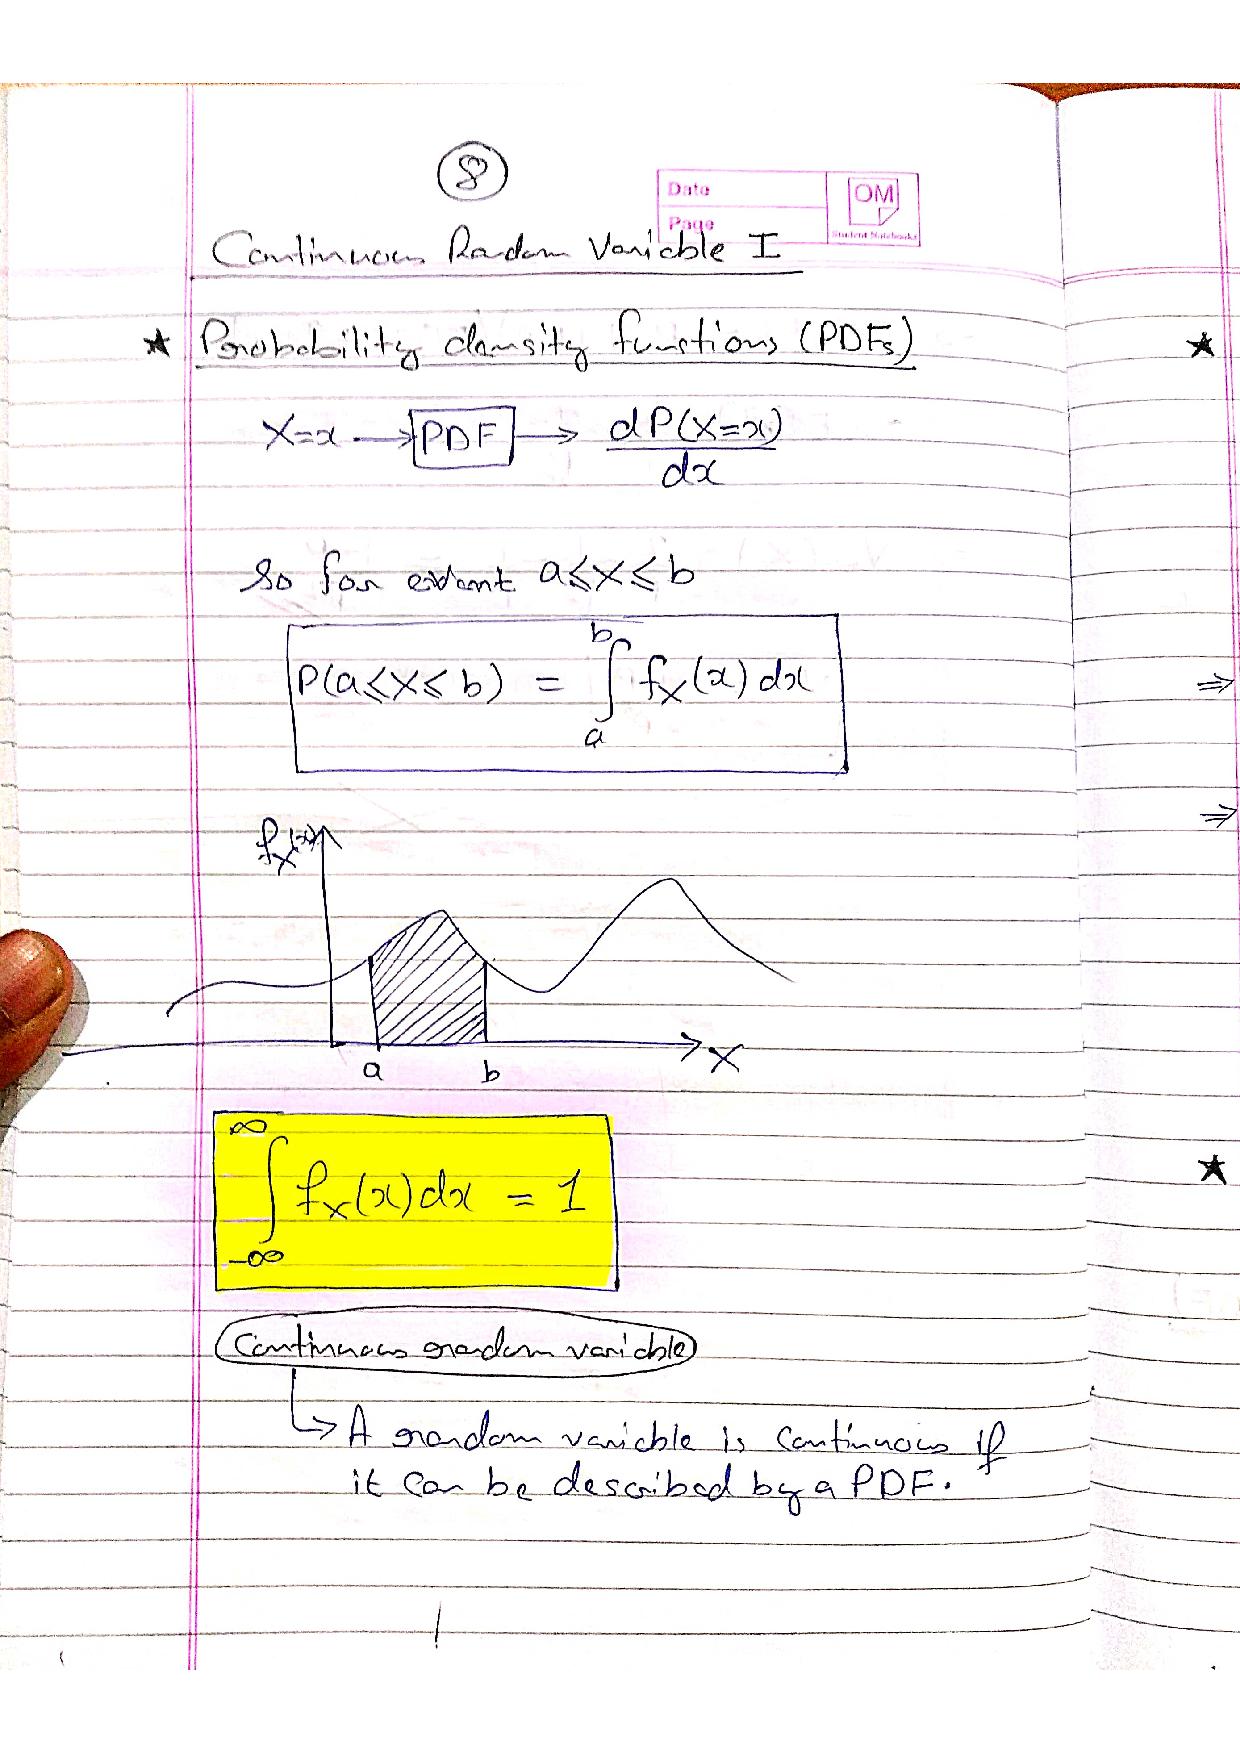 8
Date
OM
Page
Student Notebooks
Continuous Random Variable I
★ Probability density functions (PDFs)
X=x → PDF → dP(X=x)/dx
So for event a≤X≤b
P(a≤X≤b) = ∫_a^b f_X(x) dx
f_X(x)
a b X
∫_{-∞}^{∞} f_X(x) dx = 1
Continuous random variable
↳ A random variable is continuous if
it can be described by a PDF.
★
⇒
⇒
★